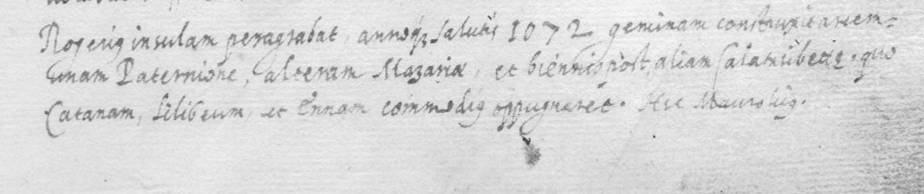 Rogerius insulam peragrabat, annoq; salutis 1072 geminam construxit arcem-
unam Paternione, alteram Mazariæ, et biennio post, aliam Calatiibetæ. quo
Catanam, Lilibeum, et Ennam commodius oppugnaret. Hæc Maurolius.